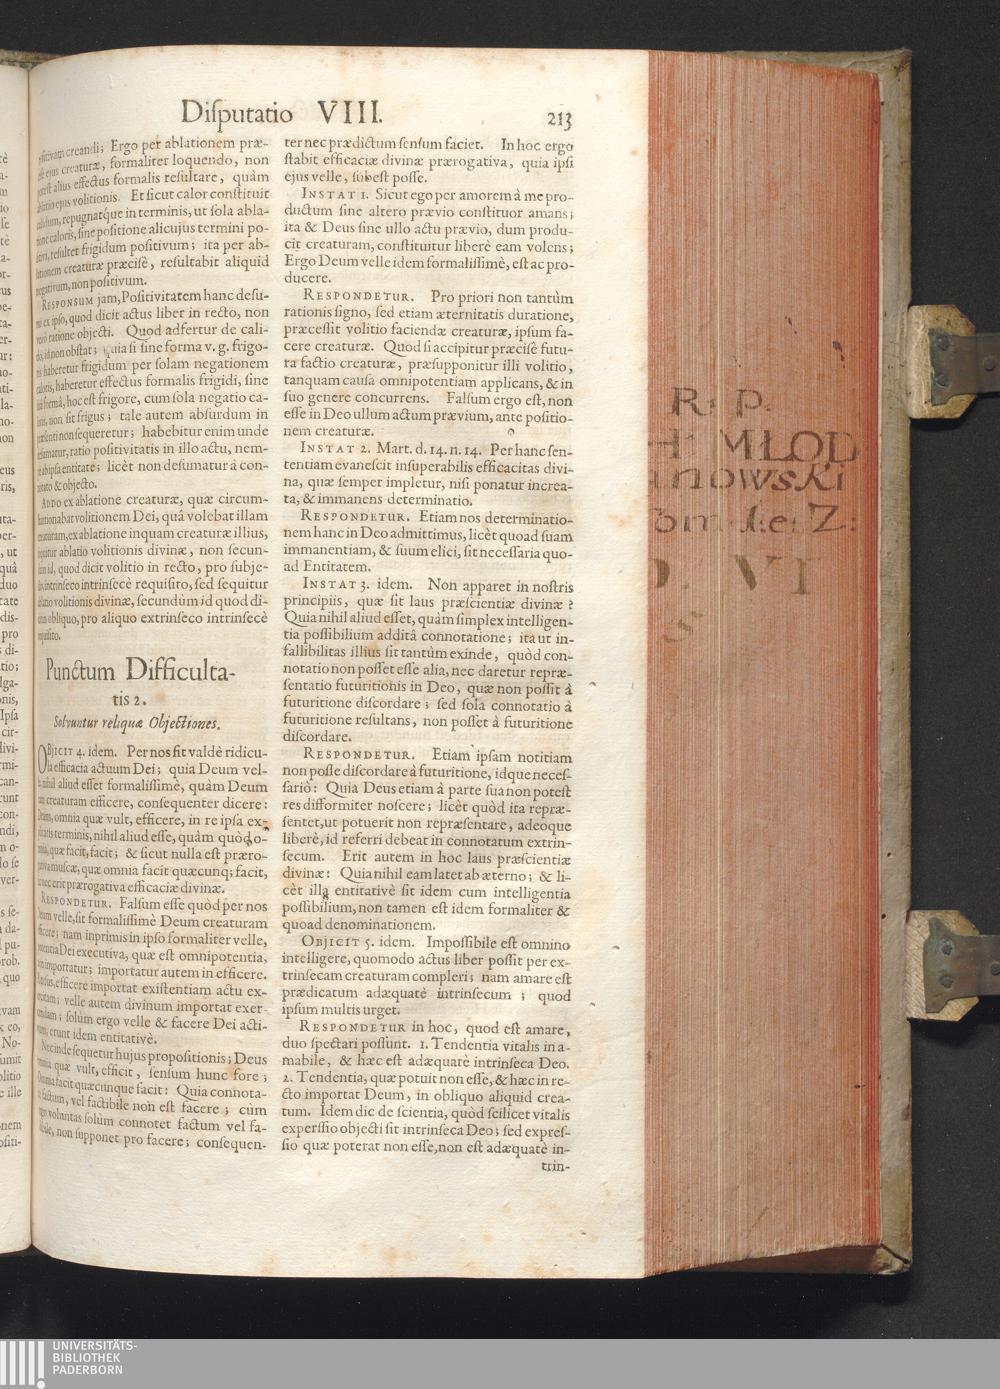 Disputatio VIII.
213
creandi; Ergo per ablationem præ-
ejus creaturæ, formaliter loquendo, non
alius effectus formalis resultare, quàm
ejus volitionis. Et sicut calor constituit
repugnatque in terminis, ut sola abla-
caloris, sine positione alicujus termini po-
resultet frigidum positivum; ita per ab-
creaturæ præcisè, resultabit aliquid
negativum, non positivum.
RESPONSUM jam, Positivitatem hanc desu-
ex ipso, quod dicit actus liber in recto, non
verò ratione objecti. Quod adfertur de cali-
id non obstat; quia si sine forma v. g. frigo-
haberetur frigidum per solam negationem
caloris, haberetur effectus formalis frigidi, sine
formâ, hoc est frigore, cum sola negatio ca-
non sit frigus; tale autem absurdum in
non sequeretur; habebitur enim unde
ratio positivitatis in illo actu, nem-
ab ipsa entitate; licèt non desumatur à con-
& objecto.
ADDO ex ablatione creaturæ, quæ circum-
volitionem Dei, quâ volebat illam
ex ablatione inquam creaturæ illius,
ablatio volitionis divinæ, non secun-
id, quod dicit volitio in recto, pro subje-
intrinseco intrinsecè requisito, sed sequitur
volitionis divinæ, secundùm id quod di-
obliquo, pro aliquo extrinseco intrinsecè
Punctum Difficulta-
tis 2.
Solvuntur reliquæ Objectiones.
OBJICIT 4. idem. Per nos fit valdè ridicu-
la efficacia actuum Dei; quia Deum vel-
nihil aliud esset formalissimè, quàm Deum
creaturam efficere, consequenter dicere:
Deum, omnia quæ vult, efficere, in re ipsa ex-
terminis, nihil aliud esse, quàm quòd o-
quæ facit, facit; & sicut nulla est præro-
muscæ, quæ omnia facit quæcunq; facit,
nec erit prærogativa efficaciæ divinæ.
RESPONDETUR. Falsum esse quòd per nos
Deum velle, sit formalissimè Deum creaturam
nam inprimis in ipso formaliter velle,
Dei executiva, quæ est omnipotentia,
importatur; importatur autem in efficere.
efficere importat existentiam actu ex-
velle autem divinum importat exer-
solùm ergo velle & facere Dei acti-
erunt idem entitativè.
Nec inde sequetur hujus propositionis; Deus
omnia quæ vult, efficit, sensum hunc fore;
Omnia facit quæcunque facit: Quia connota-
factum, vel factibile non est facere; cùm
voluntas solùm connotet factum vel fa-
non supponet pro facere; consequen-
ter nec prædictum sensum faciet. In hoc ergo
stabit efficaciæ divinæ prærogativa, quia ipsi
ejus velle, subest posse.
INSTAT 1. Sicut ego per amorem à me pro-
ductum sine altero prævio constituor amans;
ita & Deus sine ullo actu prævio, dum produ-
cit creaturam, constituitur liberè eam volens;
Ergo Deum velle idem formalissimè, est ac pro-
ducere.
RESPONDETUR. Pro priori non tantùm
rationis signo, sed etiam æternitatis duratione,
præcessit volitio faciendæ creaturæ, ipsum fa-
cere creaturæ. Quod si accipitur præcisè futu-
ra factio creaturæ, præsupponitur illi volitio,
tanquam causa omnipotentiam applicans, & in
suo genere concurrens. Falsum ergo est, non
esse in Deo ullum actum prævium, ante positio-
nem creaturæ.
INSTAT 2. Mart. d. 14. n. 14. Per hanc sen-
tentiam evanescit insuperabilis efficacitas divi-
na, quæ semper impletur, nisi ponatur increa-
ta, & immanens determinatio.
RESPONDETUR. Etiam nos determinatio-
nem hanc in Deo admittimus, licèt quoad suam
immanentiam, & suum elici, sit necessaria quo-
ad Entitatem.
INSTAT 3. idem. Non apparet in nostris
principiis, quæ sit laus præscientiæ divinæ?
Quia nihil aliud esset, quàm simplex intelligen-
tia possibilium additâ connotatione; ita ut in-
fallibilitas illius sit tantùm exinde, quòd con-
notatio non posset esse alia, nec daretur repræ-
sentatio futuritionis in Deo, quæ non possit à
futuritione discordare; sed sola connotatio à
futuritione resultans, non posset à futuritione
discordare.
RESPONDETUR. Etiam ipsam notitiam
non posse discordare à futuritione, idque neces-
sariò: Quia Deus etiam à parte sua non potest
res difformiter noscere; licèt quòd ita repræ-
sentet, ut potuerit non repræsentare, adeoque
liberè, id referri debeat in connotatum extrin-
secum. Erit autem in hoc laus præscientiæ
divinæ: Quia nihil eam latet ab æterno; & li-
cèt illa entitativè sit idem cum intelligentia
possibilium, non tamen est idem formaliter &
quoad denominationem.
OBJICIT 5. idem. Impossibile est omnino
intelligere, quomodo actus liber possit per ex-
trinsecam creaturam compleri; nam amare est
prædicatum adæquatè intrinsecum; quod
ipsum multis urget.
RESPONDETUR in hoc, quod est amare,
duo spectari possunt. 1. Tendentia vitalis in a-
mabile, & hæc est adæquatè intrinseca Deo.
2. Tendentia, quæ potuit non esse, & hæc in re-
cto importat Deum, in obliquo aliquid crea-
tum. Idem dic de scientia, quòd scilicet vitalis
experssio objecti sit intrinseca Deo; sed expres-
sio quæ poterat non esse, non est adæquatè in-
trin-
R: P:
MŁOD
anowski
Tom. 1: et 2:
VI
UNIVERSITÄTS-
BIBLIOTHEK
PADERBORN